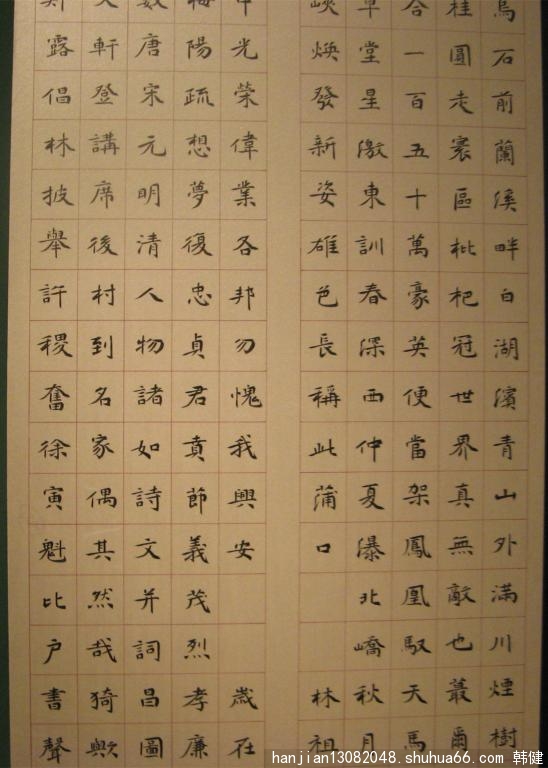 烏石前蘭溪畔白湖濱青山外滿川煙樹
桂圓走寰區枇杷冠世界真無敵也蕞爾
合一百五十萬豪英便當架鳳凰馭天馬
堂星激東訓春深西仲夏瀑北嶠秋月
峽煥發新姿雄色長稱此蒲口
林祖
光榮偉業各邦勿愧我興安
歲在
梅陽疏想夢復忠貞君賁節義茂烈孝廉
數唐宋元明清人物諸如詩文并詞昌圖
軒登講席後村到名家偶其然哉猗歟
露倡林披舉許稷奮徐寅魁比戶書聲
hanjian13082048.shuhua66.com 韩健